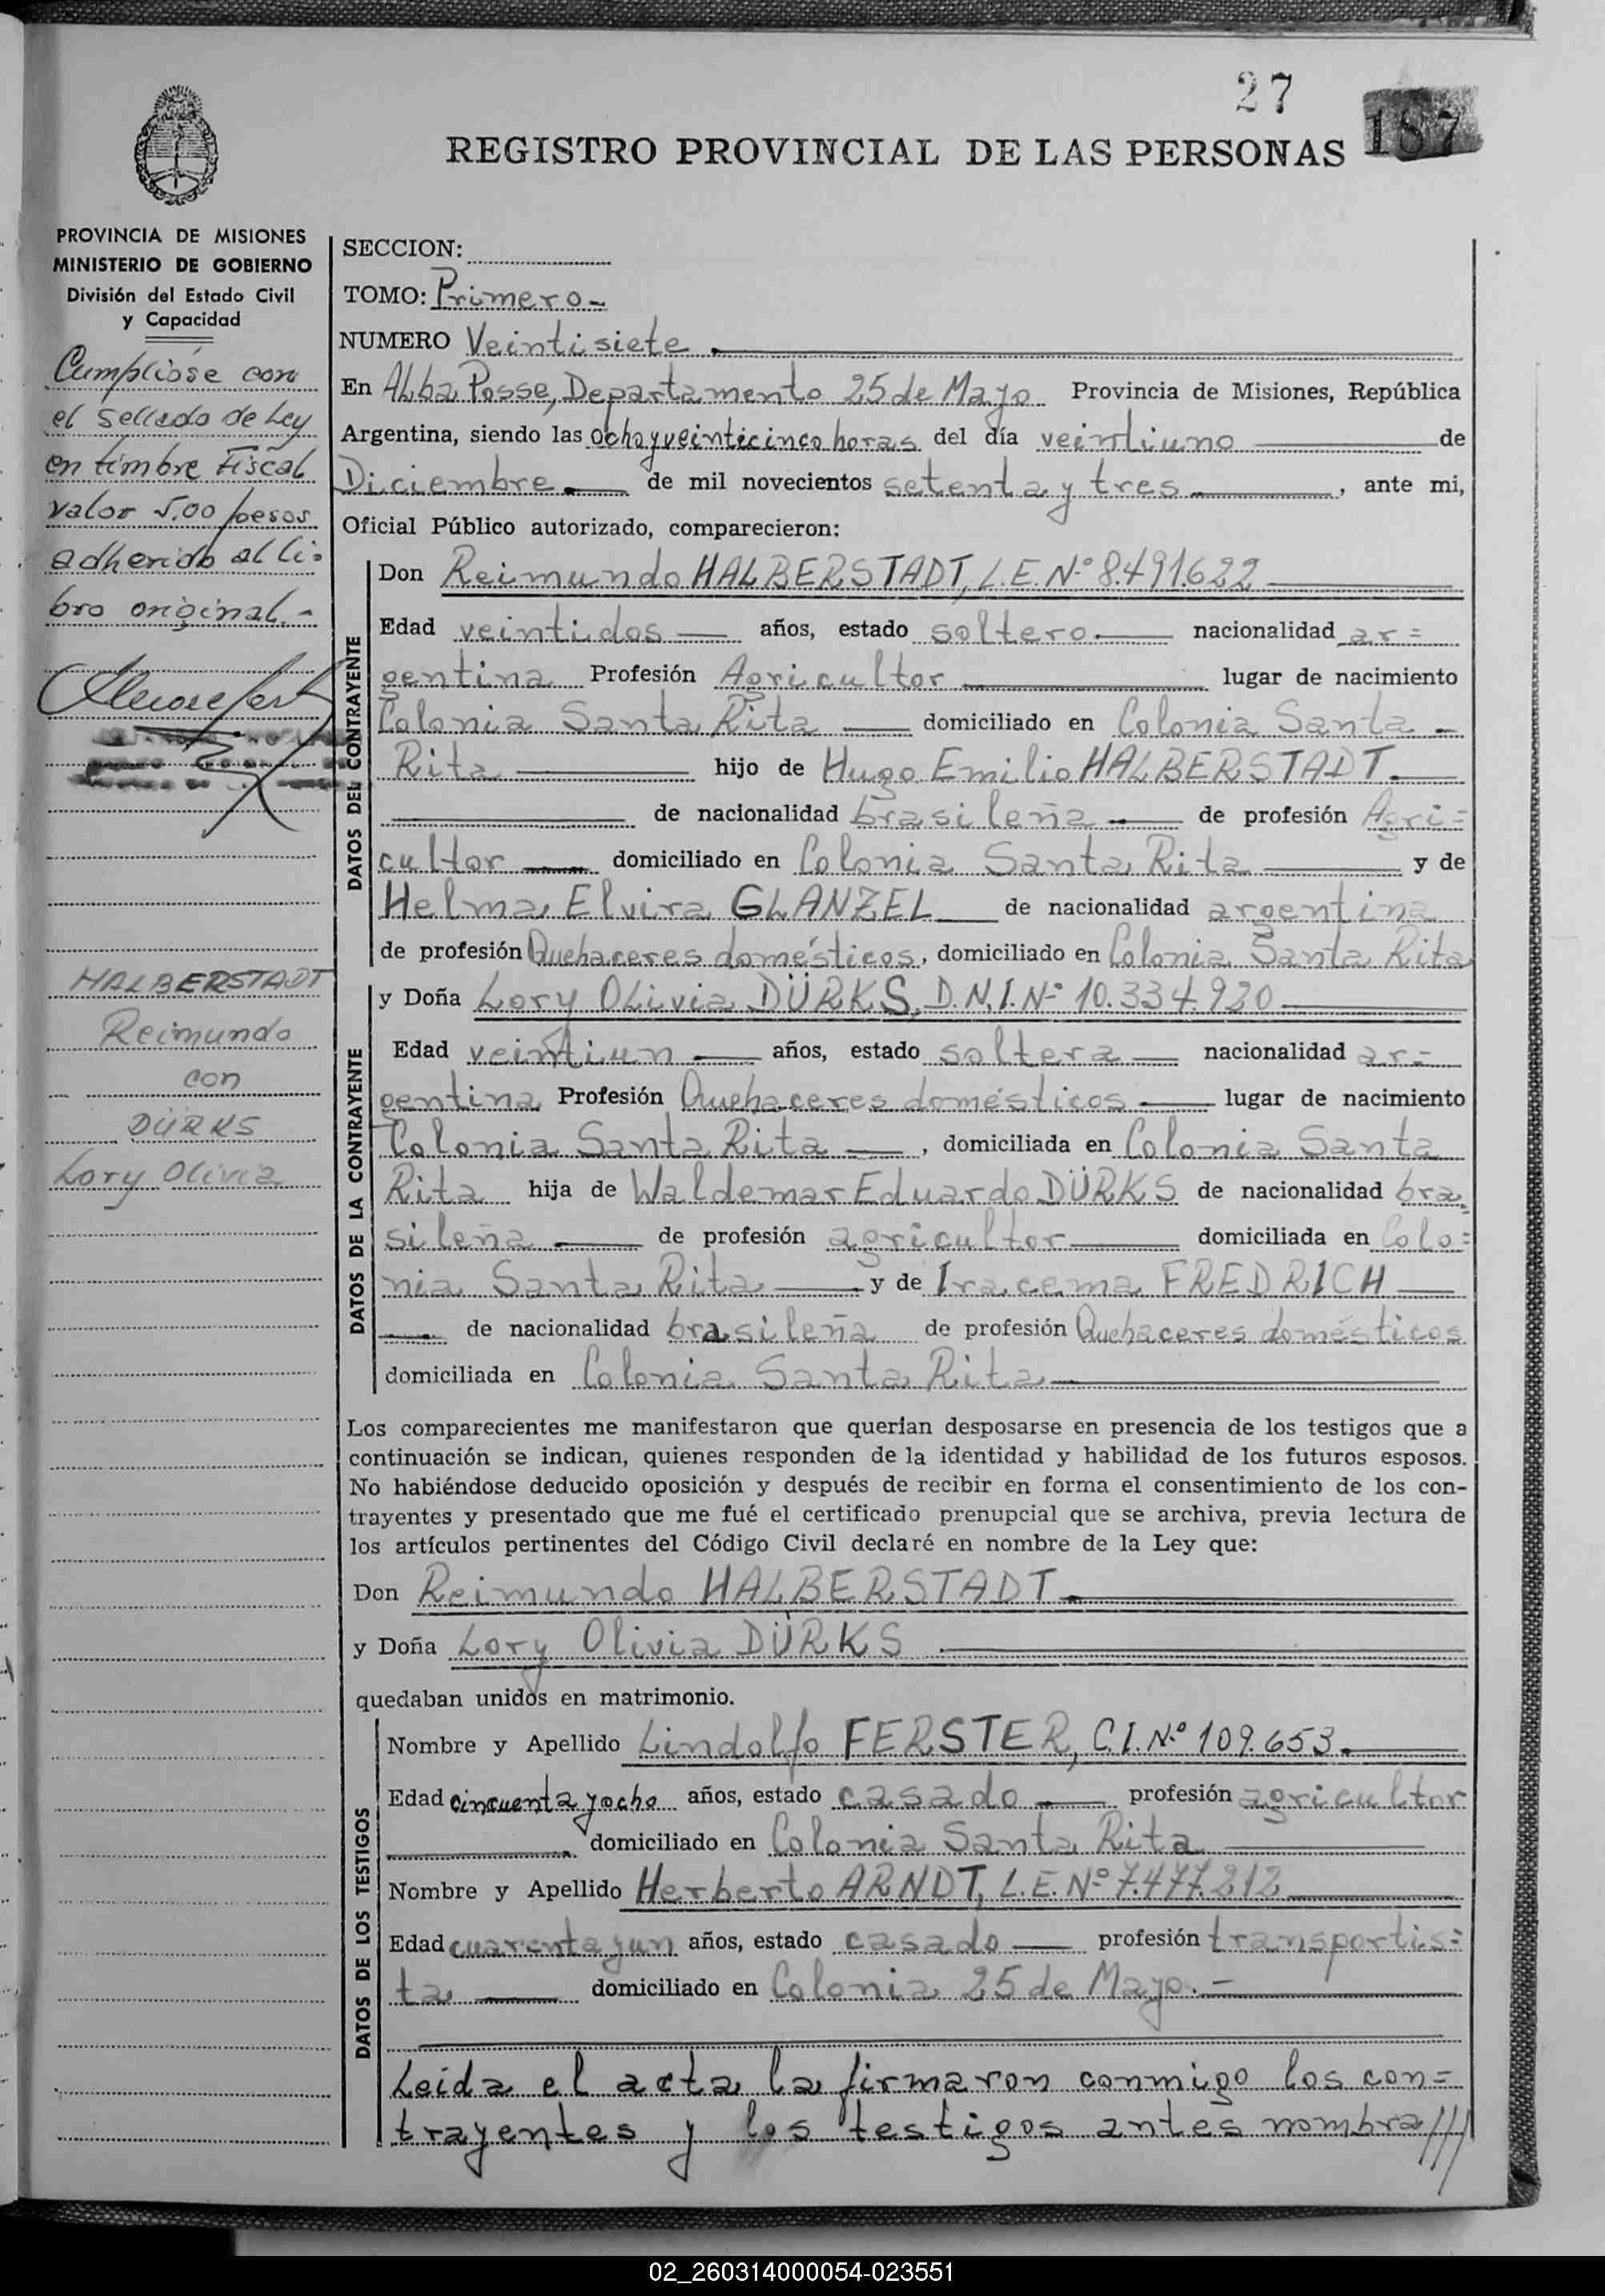 27
187
REGISTRO PROVINCIAL DE LAS PERSONAS
PROVINCIA DE MISIONES
MINISTERIO DE GOBIERNO
División del Estado Civil
y Capacidad
Cumplióse con
el Sellado de Ley
en timbre Fiscal
valor 5.00 pesos
adherido al li-
bro original.-
HALBERSTADT
Reimundo
con
DÜRKS
Lory Olivia
SECCION:
TOMO: Primero-
NUMERO Veintisiete
En Alba Posse, Departamento 25 de Mayo Provincia de Misiones, República
Argentina, siendo las ocho y veinticinco horas del día veintiuno de
Diciembre. de mil novecientos setenta y tres. , ante mi,
Oficial Público autorizado, comparecieron:
DATOS DEL CONTRAYENTE
Don Reimundo HALBERSTADT, L.E. Nº 8.491.622
Edad veintidos años, estado soltero nacionalidad ar=
gentina Profesión Agricultor lugar de nacimiento
Colonia Santa Rita domiciliado en Colonia Santa -
Rita hijo de Hugo Emilio HALBERSTADT.
de nacionalidad brasileña de profesión Agri=
cultor domiciliado en Colonia Santa Rita y de
Helma Elvira GLANZEL de nacionalidad argentina
de profesión Quehaceres domésticos, domiciliado en Colonia Santa Rita
DATOS DE LA CONTRAYENTE
y Doña Lory Olivia DÜRKS, D.N.I. Nº 10.334.920
Edad veintiun años, estado soltera nacionalidad ar=
gentina Profesión Quehaceres domésticos lugar de nacimiento
Colonia Santa Rita , domiciliada en Colonia Santa
Rita hija de Waldemar Eduardo DÜRKS de nacionalidad bra=
sileña de profesión agricultor domiciliada en Colo=
nia Santa Rita y de Iracema FREDRICH
de nacionalidad brasileña de profesión Quehaceres domésticos
domiciliada en Colonia Santa Rita
Los comparecientes me manifestaron que querían desposarse en presencia de los testigos que a
continuación se indican, quienes responden de la identidad y habilidad de los futuros esposos.
No habiéndose deducido oposición y después de recibir en forma el consentimiento de los con-
trayentes y presentado que me fué el certificado prenupcial que se archiva, previa lectura de
los artículos pertinentes del Código Civil declaré en nombre de la Ley que:
Don Reimundo HALBERSTADT.
y Doña Lory Olivia DÜRKS
quedaban unidos en matrimonio.
DATOS DE LOS TESTIGOS
Nombre y Apellido Lindolfo FERSTER, C.I. Nº 109.653.
Edad cincuenta y ocho años, estado casado profesión agricultor
domiciliado en Colonia Santa Rita
Nombre y Apellido Herberto ARNDT, L.E. Nº 7.477.212
Edad cuarenta y un años, estado casado profesión transportis=
ta domiciliado en Colonia 25 de Mayo.-
Leida el acta la firmaron conmigo los con=
trayentes y los testigos antes nombra///
02_260314000054-023551